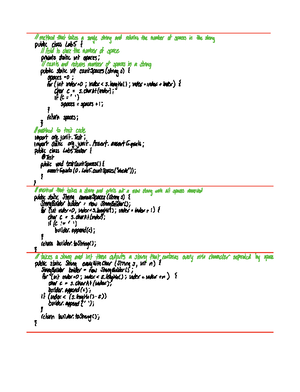 // method that takes a single string and returns the number of spaces in the string
public class Lab5 {
// field to store the number of spaces
private static int spaces;
// counts and returns number of spaces in a string
public static int countSpaces(String s) {
spaces = 0;
for (int index = 0; index < s.length(); index = index + 1) {
char c = s.charAt(index);
if (c == ' ')
spaces = spaces + 1;
}
return spaces;
}
// method to test code
import org.junit.Test;
import static org.junit.Assert.assertEquals;
public class Lab5Tester {
@Test
public void testCountSpaces() {
assertEquals(0, Lab5.countSpaces(
}
}
// method that takes a string and prints out a new string with all spaces removed
public static String removeSpaces(String s) {
StringBuilder builder = new StringBuilder();
for (int index = 0; index < s.length(); index = index + 1) {
char c = s.charAt(index);
if (c != ' ')
builder.append(c);
}
return builder.toString();
}
// takes a string and int then outputs a string that contains every nth character separated by
public static String everyNthChar (String s, int n) {
StringBuilder builder = new StringBuilder();
for (int index = 0; index < s.length(); index = index + n) {
char c = s.charAt(index);
builder.append(c);
if (index < (s.length() -
builder.append(' ');
}
return builder.toString();
}